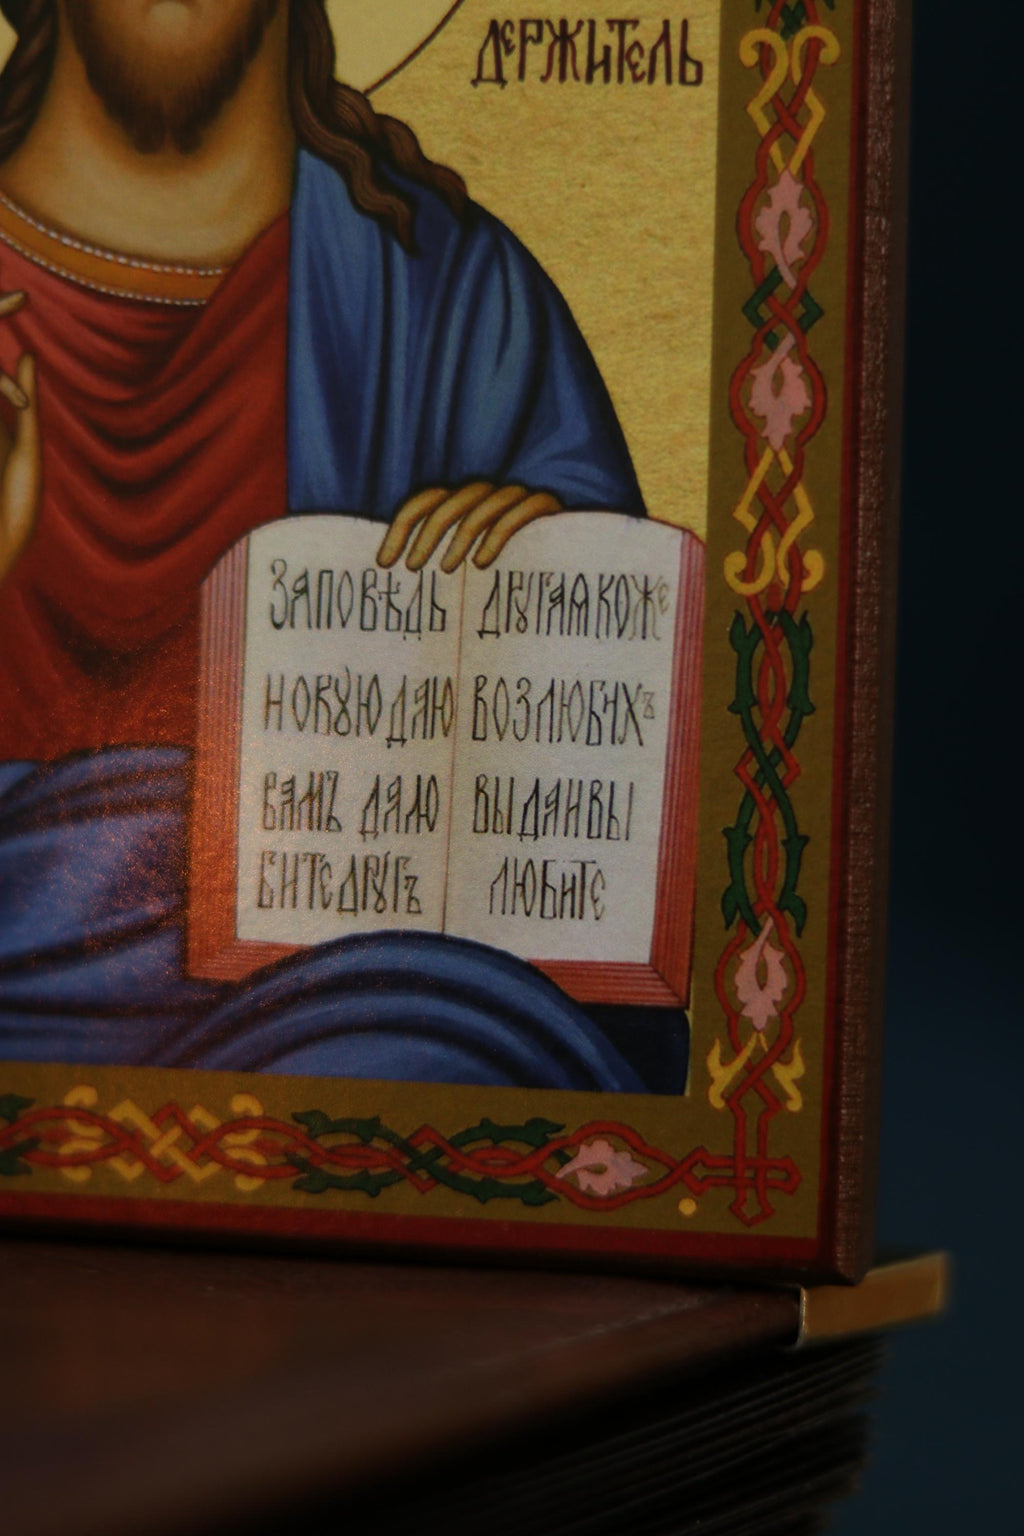 ДЕРЖИТЕЛЬ
ЗАПОВѢДЬ
НОВꙊЮ ДАЮ
ВАМЪ ДА ЛЮ
БИТЕ ДРꙊГЪ
ДРꙊГА ꙖКОЖЕ
ВОЗЛЮБИХЪ
ВЫ ДА И ВЫ
ЛЮБИТЕ